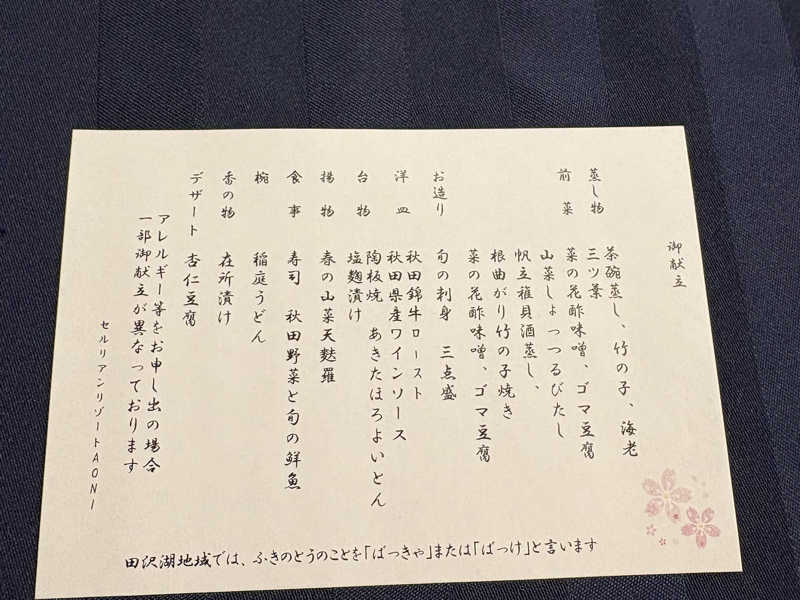 御献立
蒸し物
茶碗蒸し、竹の子、海老
三ツ葉
前菜
菜の花酢味噌、ゴマ豆腐
山菜しょっつるびたし
帆立稚貝酒蒸し、
根曲がり竹の子焼き
菜の花酢味噌、ゴマ豆腐
お造り
旬の刺身 三点盛
洋皿
秋田錦牛ロースト
秋田県産ワインソース
台物
陶板焼 あきたほろよいとん
塩麹漬け
揚物
春の山菜天麩羅
食事
寿司 秋田野菜と旬の鮮魚
椀
稲庭うどん
香の物
在所漬け
デザート
杏仁豆腐
アレルギー等をお申し出の場合
一部御献立が異なっております
セルリアンリゾートAONI
田沢湖地域では、ふきのとうのことを「ばっきゃ」または「ばっけ」と言います